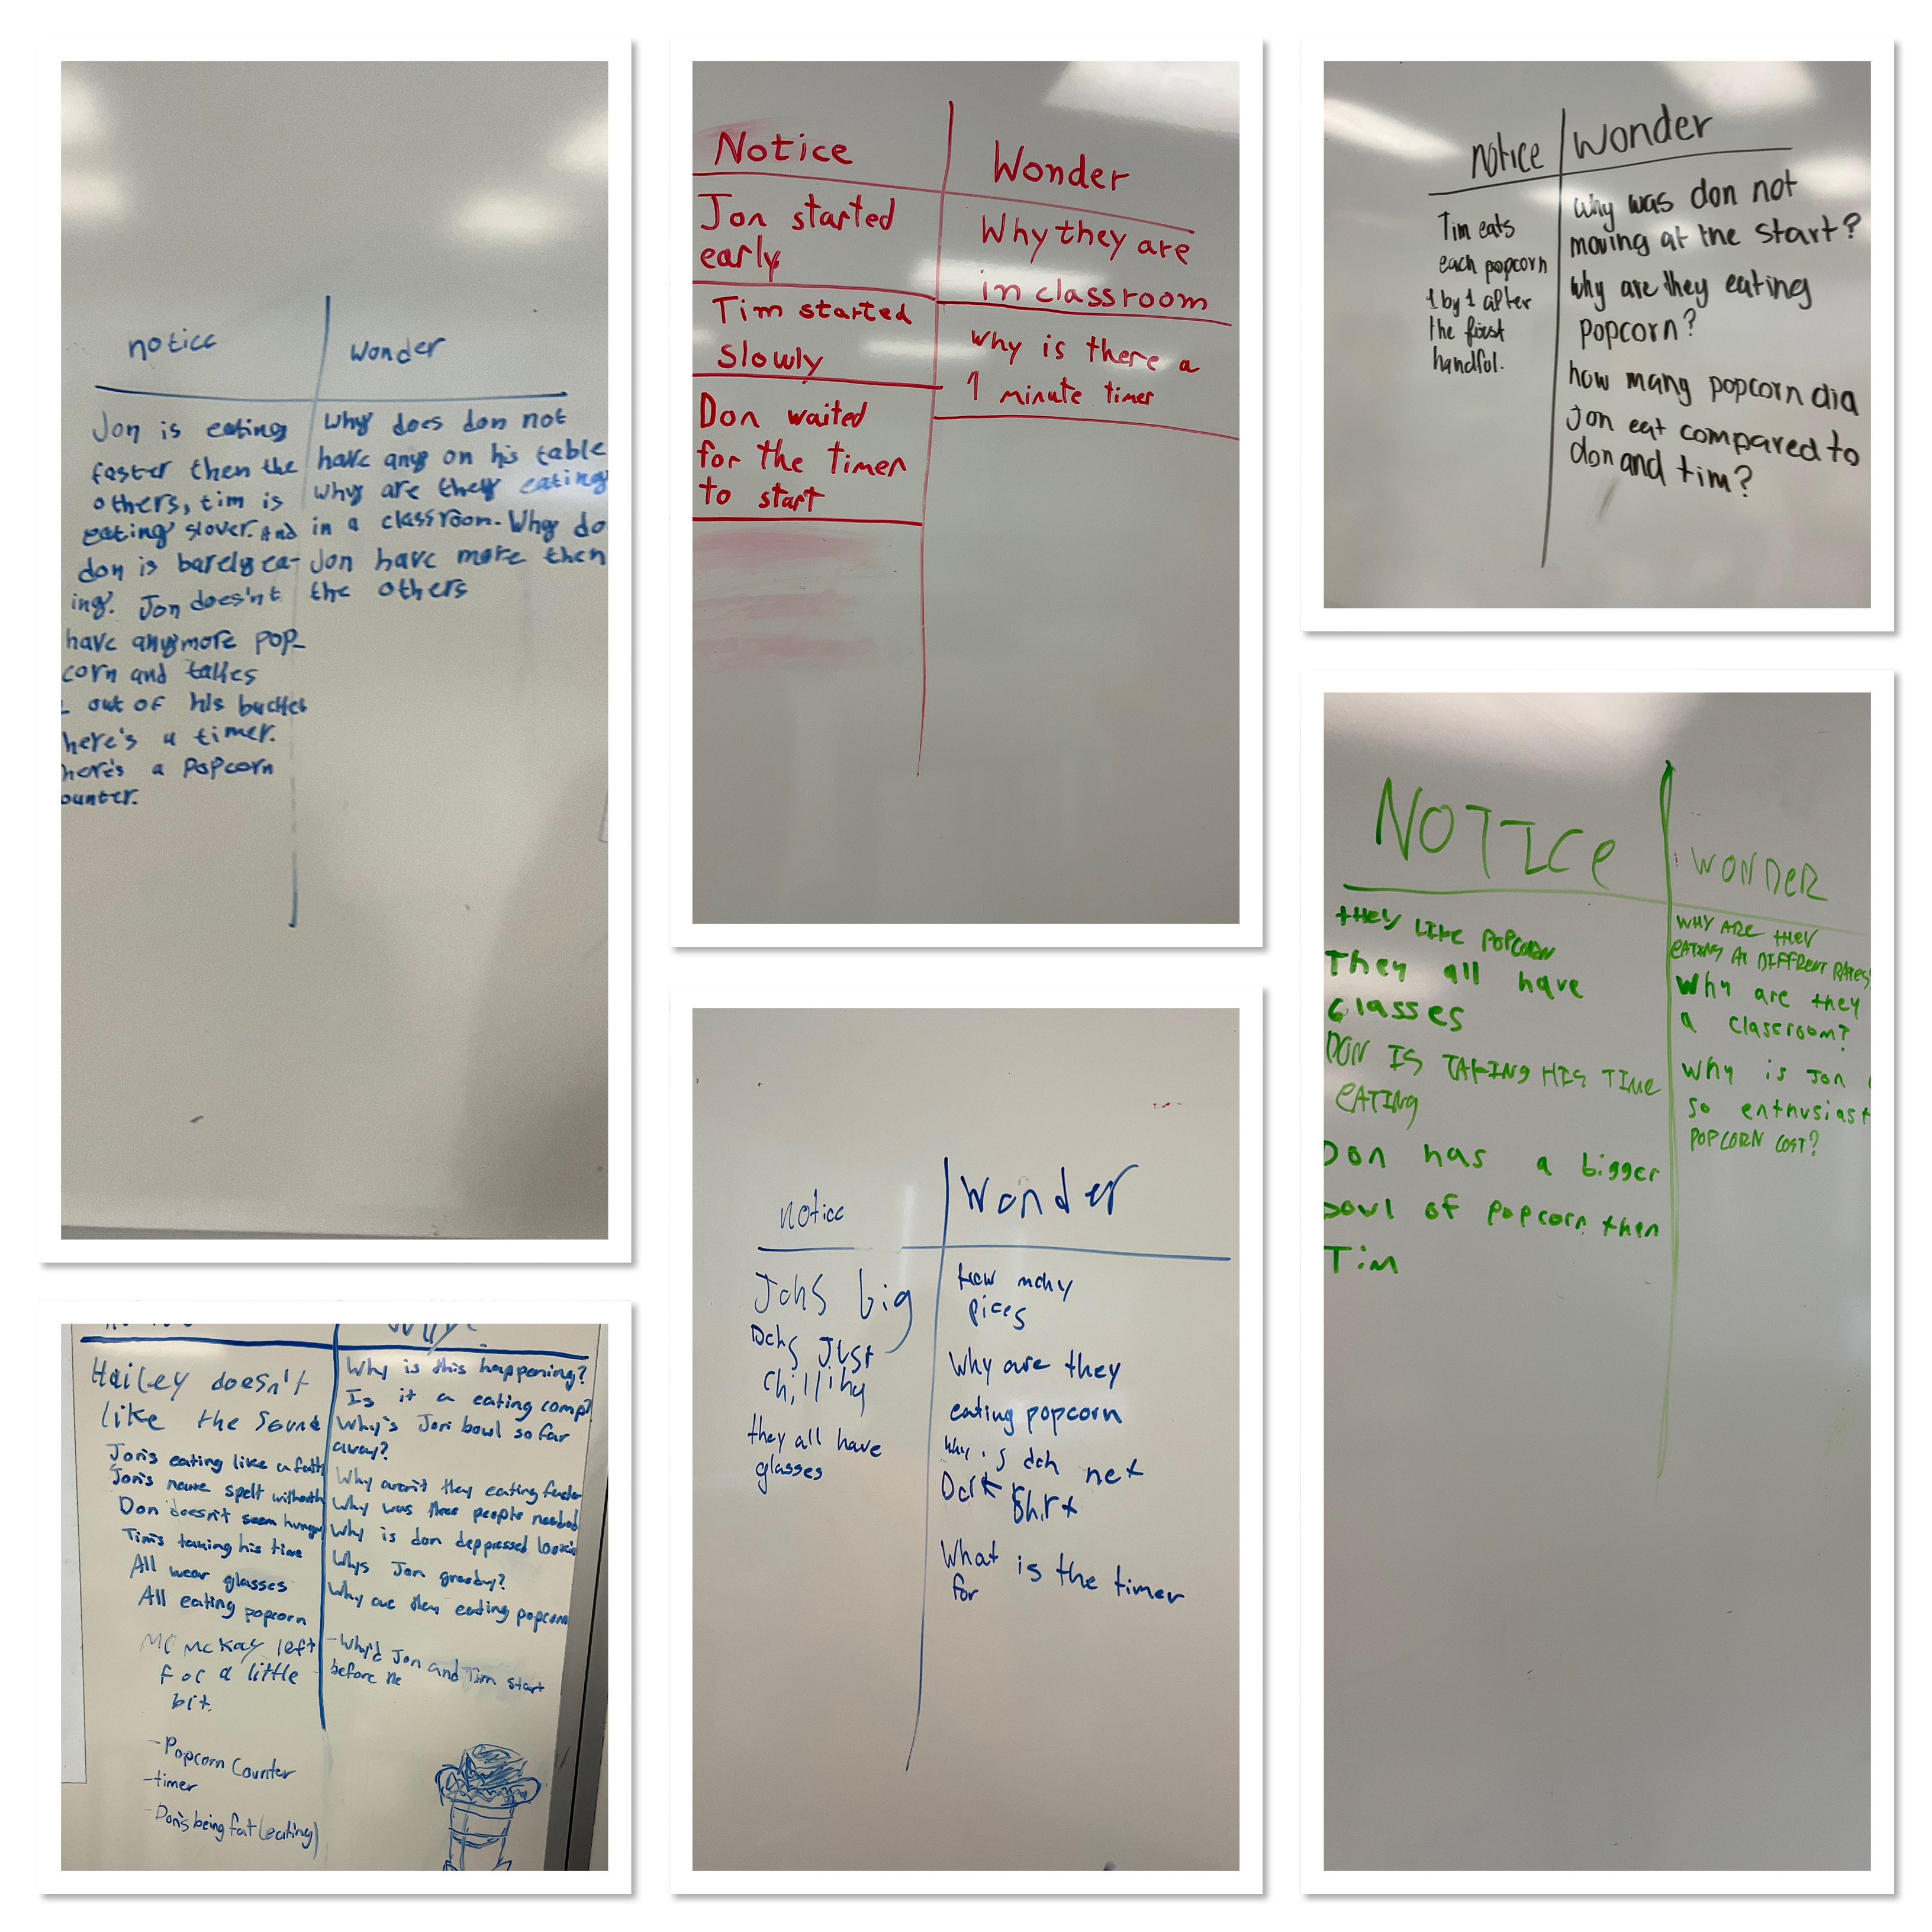 notice
Jon is eating
faster then the
others, tim is
eating slower. And
don is barely ea-
ing. Jon doesn't
have anymore pop-
corn and takes
out of his bucket
here's a timer.
here's a popcorn
ounter.
Wonder
Why does don not
have any on his table
why are they eating
in a classroom. Why do
Jon have more then
the others
Notice
Jon started
early
Tim started
slowly
Don waited
for the timer
to start
Wonder
Why they are
in classroom
Why is there a
1 minute timer
notice
Tim eats
each popcorn
1 by 1 after
the first
handful.
Wonder
Why was don not
moving at the start?
Why are they eating
popcorn?
how many popcorn did
Jon eat compared to
don and tim?
NOTICe
tHEY LIKE POPCORN
They all have
Glasses
DON IS TAKING HIS TIME
EATING
Don has a bigger
bowl of popcorn then
Tim
WONDER
WHY ARE tHEY
EATING At DIFFRENT RATES
Why are they
a classroom?
Why is Jon
so enthusiast
POPCORN COST?
Hailey doesn't
like the sound
Jon's eating like a
Jon's name spelt without
Don doesn't seem hungry
Tim's taking his time
All wear glasses
All eating popcorn
Mr McKay left
For a little
bit.
-Popcorn Counter
-timer
-Don's being fat (eating)
Why?
Why is this happening?
Is it a eating comp?
Why's Jon bowl so far
away?
Why aren't they eating faster
Why was three people needed
Why is don deppressed
Whys Jon greedy?
Why are them eating popcorn
-Why'd Jon and Tim start
before
notice
Jons big
Dons Just
Chilling
they all have
glasses
Wonder
How many
pices
Why are they
eating popcorn
Why is don not
What is the timer
for